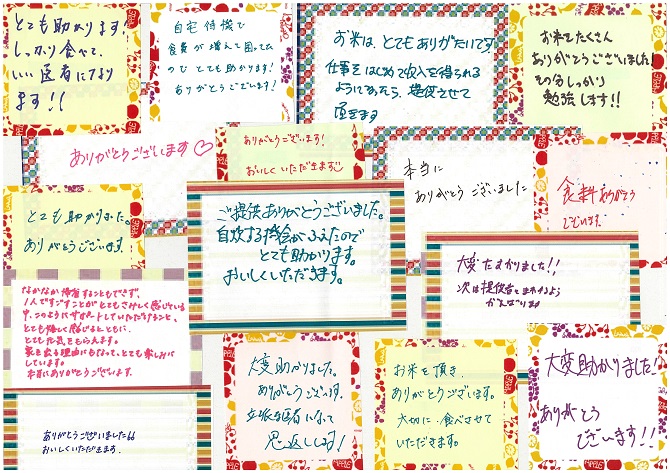 とても助かります!
しっかり食べて、
いい医者になり
ます!!
自宅待機で
食費が増えて困ってた
ので とても助かります!
ありがとうございます!
お米は、とてもありがたいです
仕事をはじめて収入を得られる
ようにあったら、提供させて
頂きます
お米をたくさん
ありがとうございました!
その分しっかり
勉強します!!
ありがとうございます♡
ありがとうございます!
おいしくいただきます♡
本当に
ありがとうございました
食料ありがとう
ございます
とても助かりました。
ありがとうございます。
ご提供ありがとうございました。
自炊する機会がふえたので
とても助かります。
おいしくいただきます。
大変たすかりました!!
次は提供者とまわれるよう
がんばります
なかなか帰省することもできず、
1人ですごすことがとてもさみしく感じている
中、このようにサポートしていただけること、
とても嬉しく感じるとともに、
とても元気をもらえます。
家を出る理由にもなって、とても楽しみに
しています。
本当にありがとうございます。
ありがとうございました
おいしくいただきます。
大変助かりました。
ありがとうございます。
立派な医者になって
恩返しします!
お米を頂き、
ありがとうございます。
大切に食べさせて
いただきます。
大変助かりました!
ありがとう
ございます!!